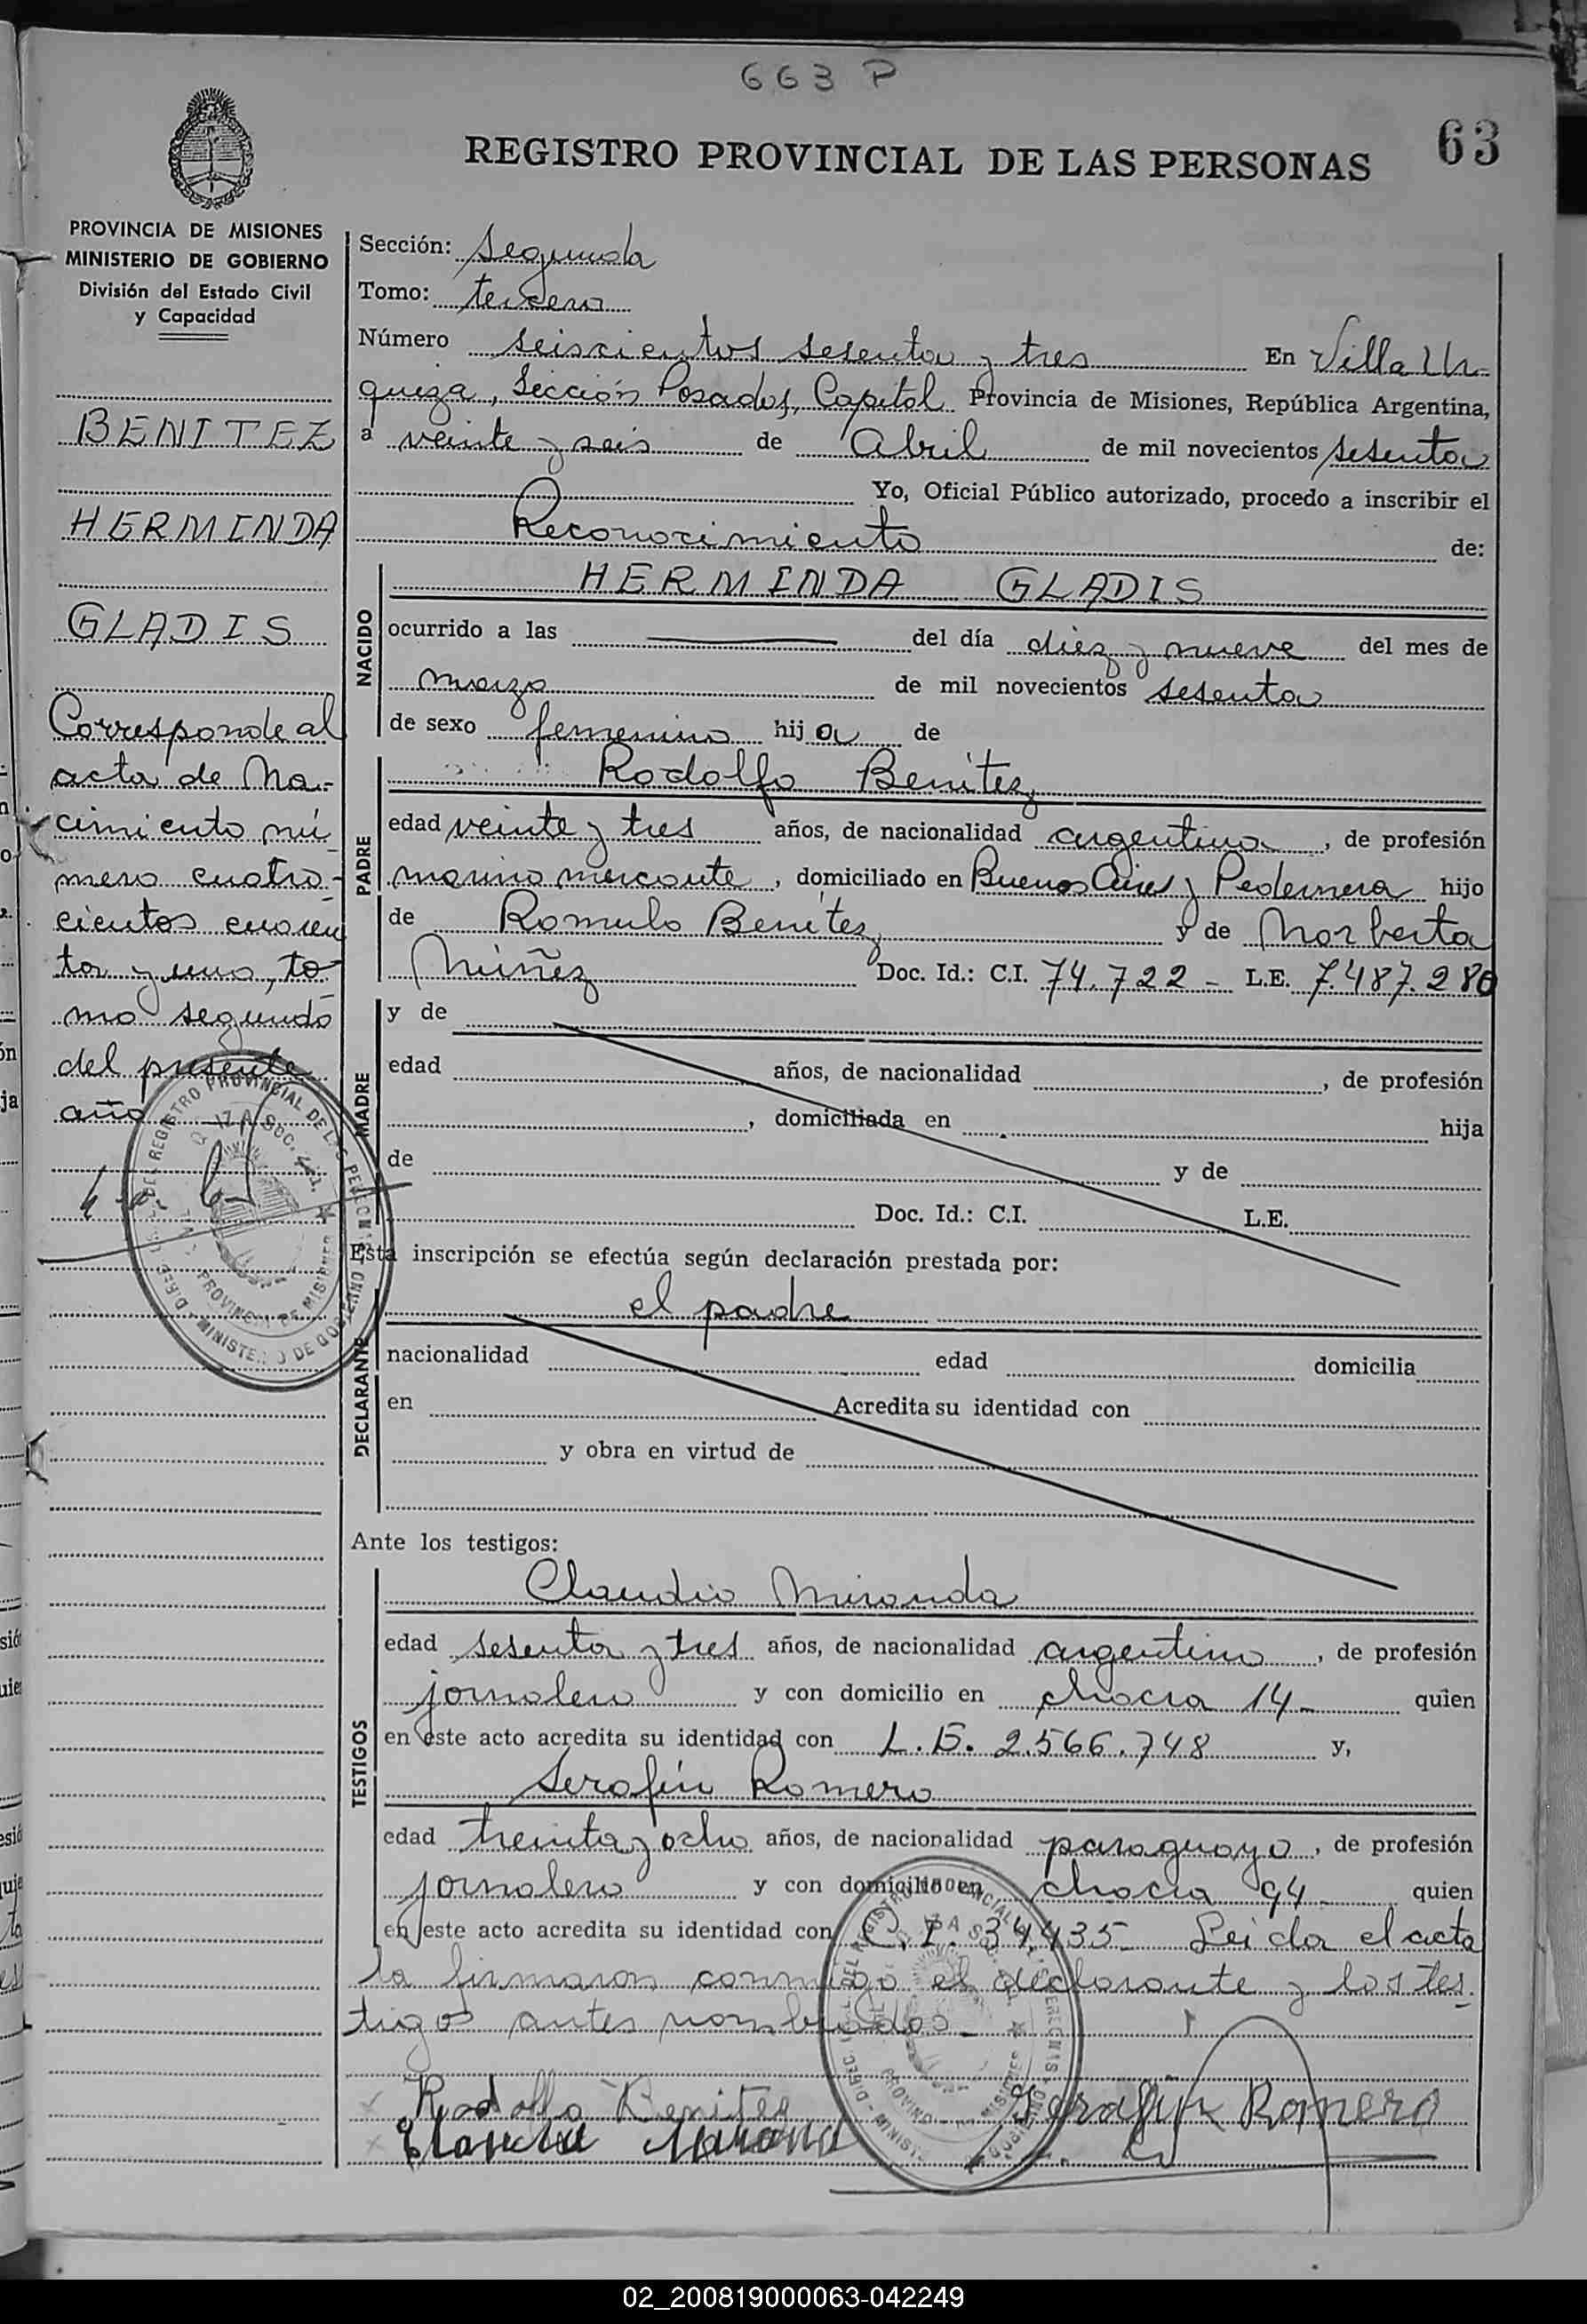 663 P
63
REGISTRO PROVINCIAL DE LAS PERSONAS
PROVINCIA DE MISIONES
MINISTERIO DE GOBIERNO
División del Estado Civil
y Capacidad
BENITEZ
HERMINDA
GLADIS
Corresponde al
acta de Na-
cimiento nú
mero cuatro-
cientos cuaren
ta y uno, to-
mo segundo
del presente
año
Sección: Segunda
Tomo: tercero
Número seiscientos sesenta y tres En Villa Ur-
quiza, Sección Posadas, Capital Provincia de Misiones, República Argentina,
a veinte y seis de Abril de mil novecientos sesenta
Yo, Oficial Público autorizado, procedo a inscribir el
Reconocimiento de:
NACIDO
HERMINDA GLADIS
ocurrido a las del día diez y nueve del mes de
marzo de mil novecientos sesenta
de sexo femenino hija de
PADRE
Rodolfo Benitez
edad veinte y tres años, de nacionalidad argentina, de profesión
marino mercante, domiciliado en Buenos Aires y Pedernera hijo
de Romulo Benítez y de Norberta
Núñez Doc. Id.: C.I. 74.722 - L.E. 7.487.280
MADRE
y de
edad años, de nacionalidad , de profesión
, domiciliada en hija
de y de
Doc. Id.: C.I. L.E.
Esta inscripción se efectúa según declaración prestada por:
DECLARANTE
el padre
nacionalidad edad domicilia
en Acredita su identidad con
y obra en virtud de
Ante los testigos:
TESTIGOS
Claudio Miranda
edad sesenta y tres años, de nacionalidad argentino, de profesión
jornalero y con domicilio en chacra 14- quien
en este acto acredita su identidad con L.E. 2.566.748 y,
Serafín Romero
edad treinta y ocho años, de nacionalidad paraguayo, de profesión
jornalero y con domicilio en chacra 94- quien
en este acto acredita su identidad con C.I. 34.435- Leida el acta
la firmaron conmigo el declarante y los tes-
tigos antes nombrados-
Rodolfo Benitez
Serafin Romero
02_200819000063-042249